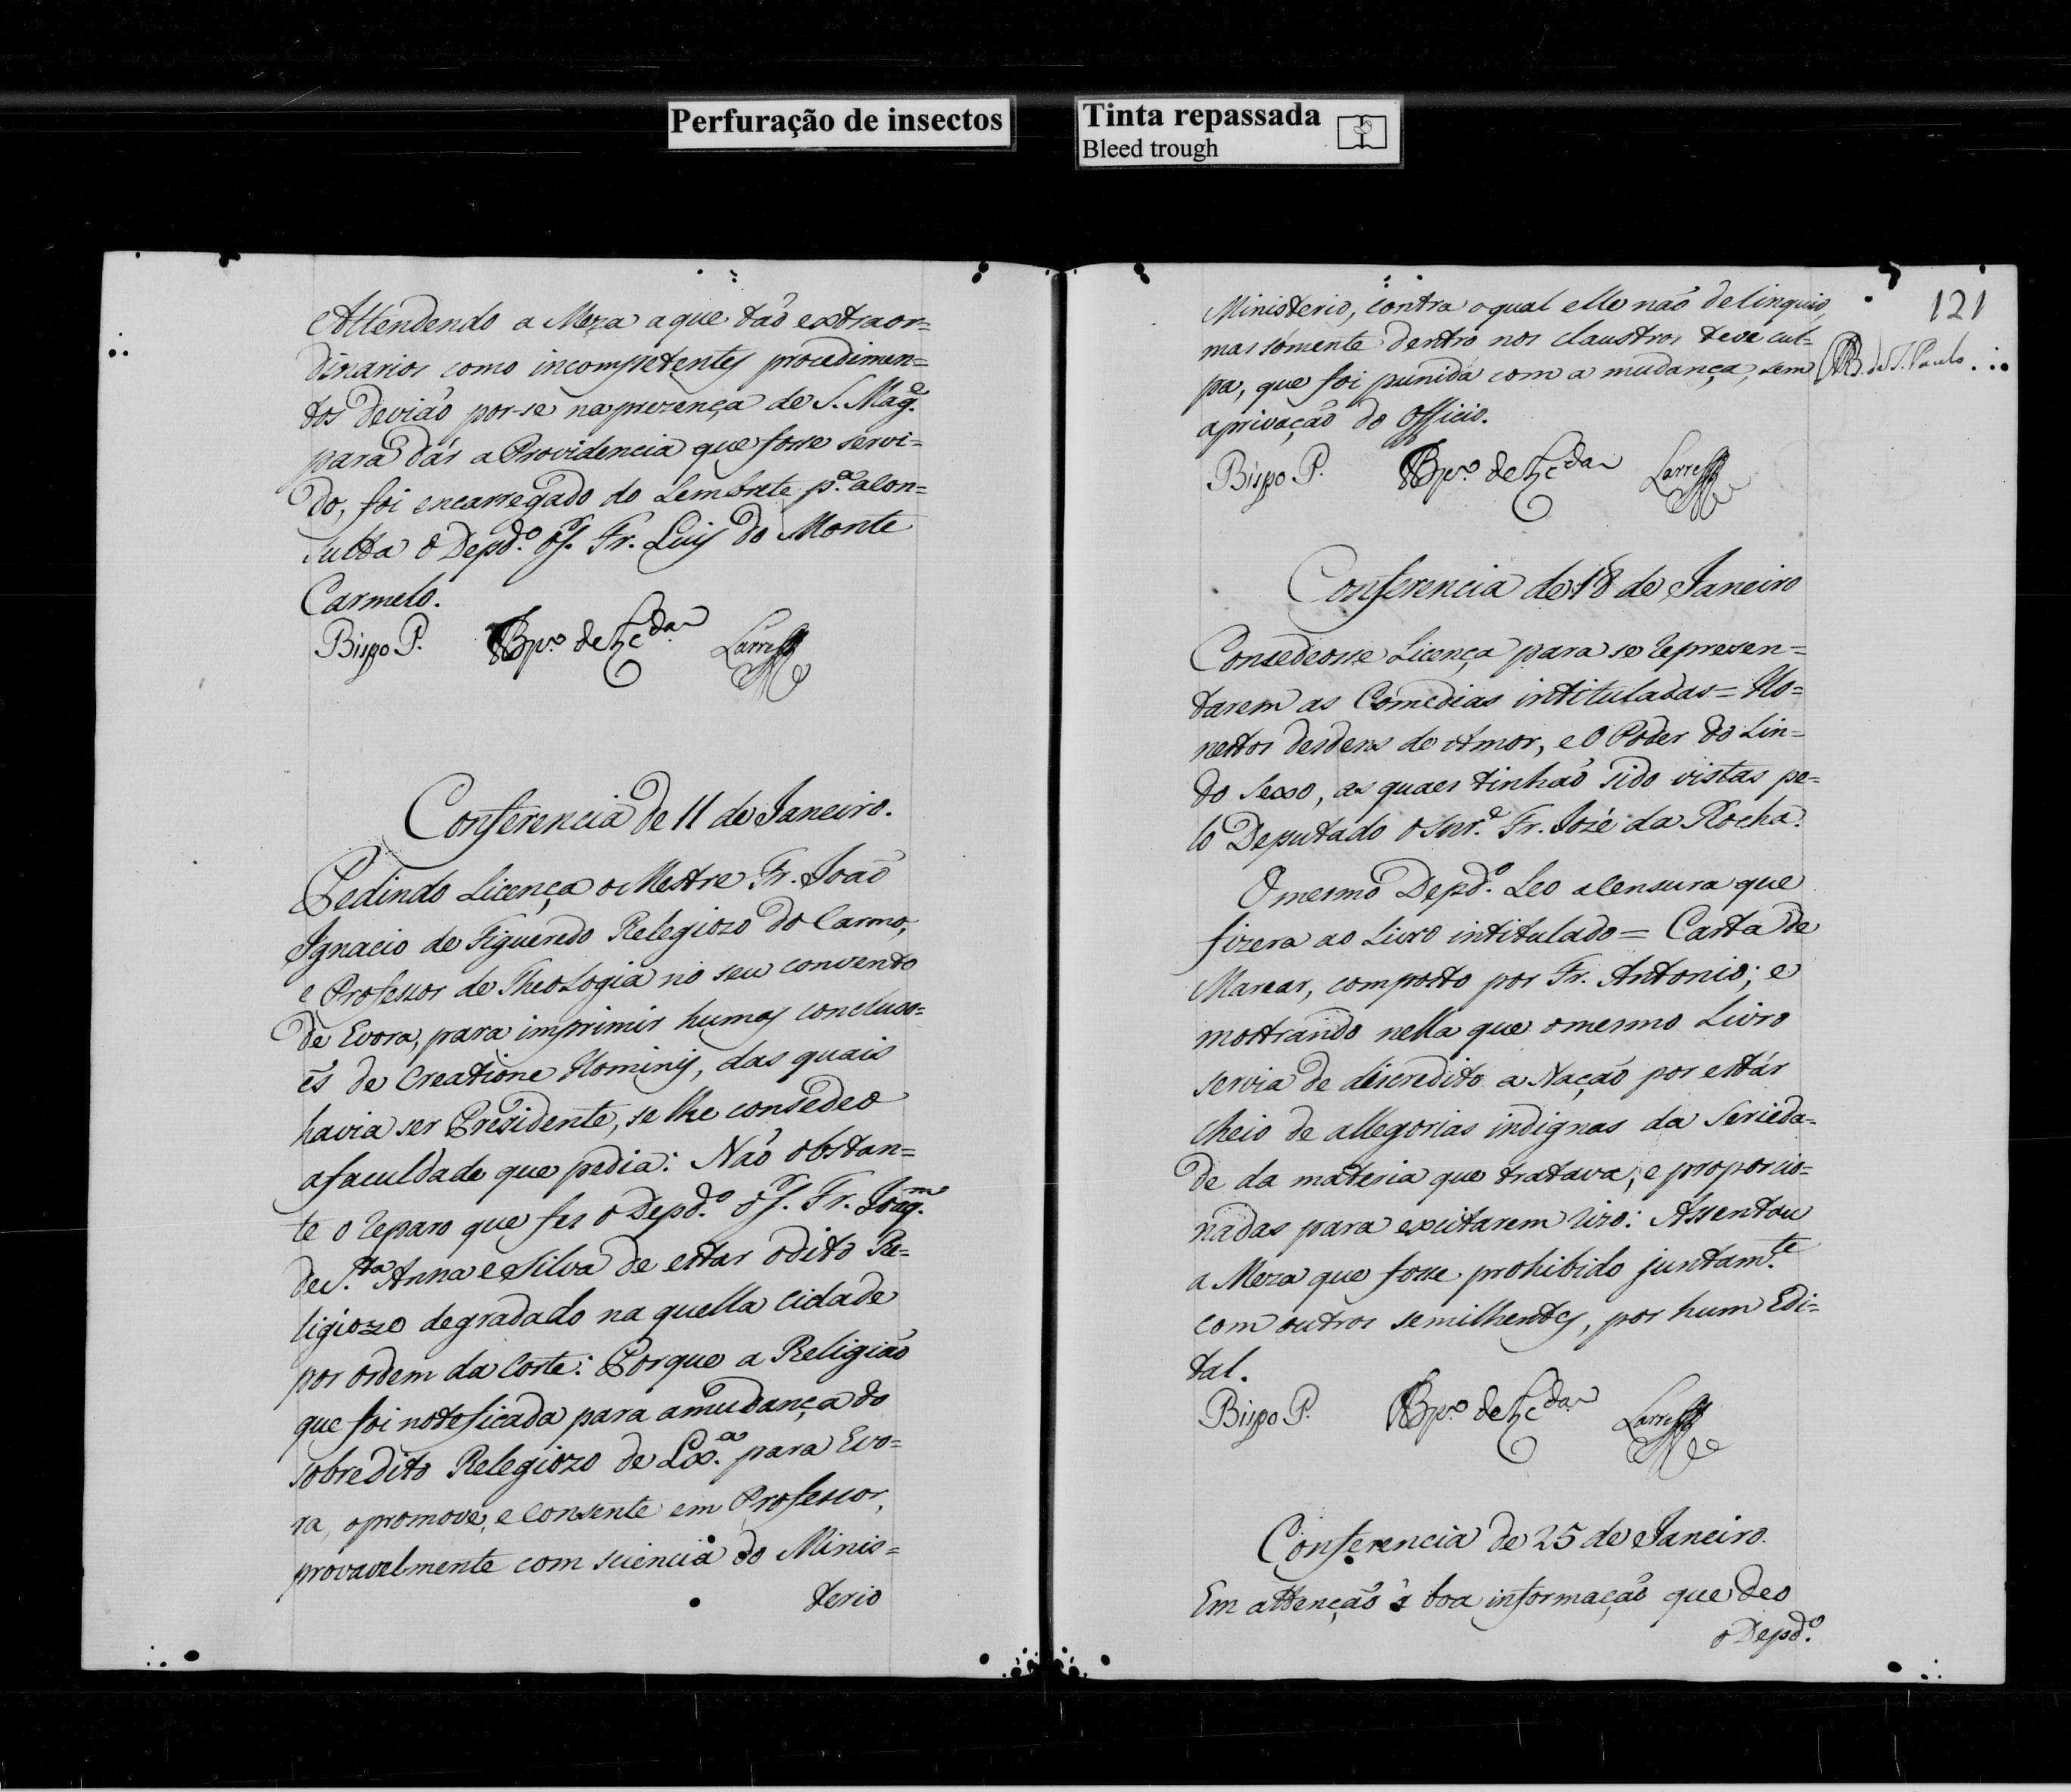 Perfuração de insectos
Tinta repassada
Bleed trough
Attendendo a Meza a que taõ extraor=
dinarios como incompetentes procedimen=
tos deviaõ por-se na prezença de S. Mag.e
para dár a Providencia que fosse servi=
do, foi encarregado do Lembrete p.a a Con=
sulta o Depd.o o S. Fr. Luis do Monte
Carmelo.
Bispo P.
Conferencia de 11 de Janeiro.
Pedindo Licença o Mestre Fr. Joaõ
Ignacio de Figueredo Relegiozo do Carmo,
e Professor de Theologia no seu convento
de Evora, para imprimir humas concluso=
ẽs de Creatione Hominis, das quais
havia ser Prezidente, se lhe consedeo
a faculdade que pedia: Naõ obstan=
te o reparo que fes o Depd.o o S. Fr. Joaq.m
de S.ta Anna e Silva de estar o dito Re=
ligiozo degradado na quella Cidade
por ordem da Corte: Porque a Religiaõ
que foi noteficada para a mudança do
sobredito Relegiozo de Lx.a para Evo=
ra, o promove, e consente em Professor,
provavelmente com sciencia do Minis=
terio
121
Ministerio, contra o qual elle naõ delinquio,
mas sómente dentro nos claustros teve cul=
pa, que foi punida com a mudança, sem
a privaçaõ do Officio.
de S. Paulo
Bispo P.
Conferencia de 18 de Janeiro
Consedeosse Licença para se represen=
tarem as Comedias intituladas = Ho=
nestos desdens de Amor, e O Poder do Lin=
do Sexo, as quaes tinhaõ sido vistas pe=
lo Deputado o Snr. Fr. Jozé da Rocha.
O mesmo Depd.o Leo a Censura que
fizera ao Livro intitulado = Carta de
Marear, composto por Fr. Antonio; e
mostrando nella que o mesmo Livro
servia de discredito a Naçaõ por estár
cheio de allegorias indignas da Serieda=
de da materia que tratava, e proporcio=
nadas para excitarem rizo: Assentou
a Meza que fosse prohibido juntam.te
com outros semilhentes, por hum Edi=
tal.
Bispo P.
Conferencia de 25 de Janeiro.
Em attençaõ á boa informaçaõ que deo
o Depd.o